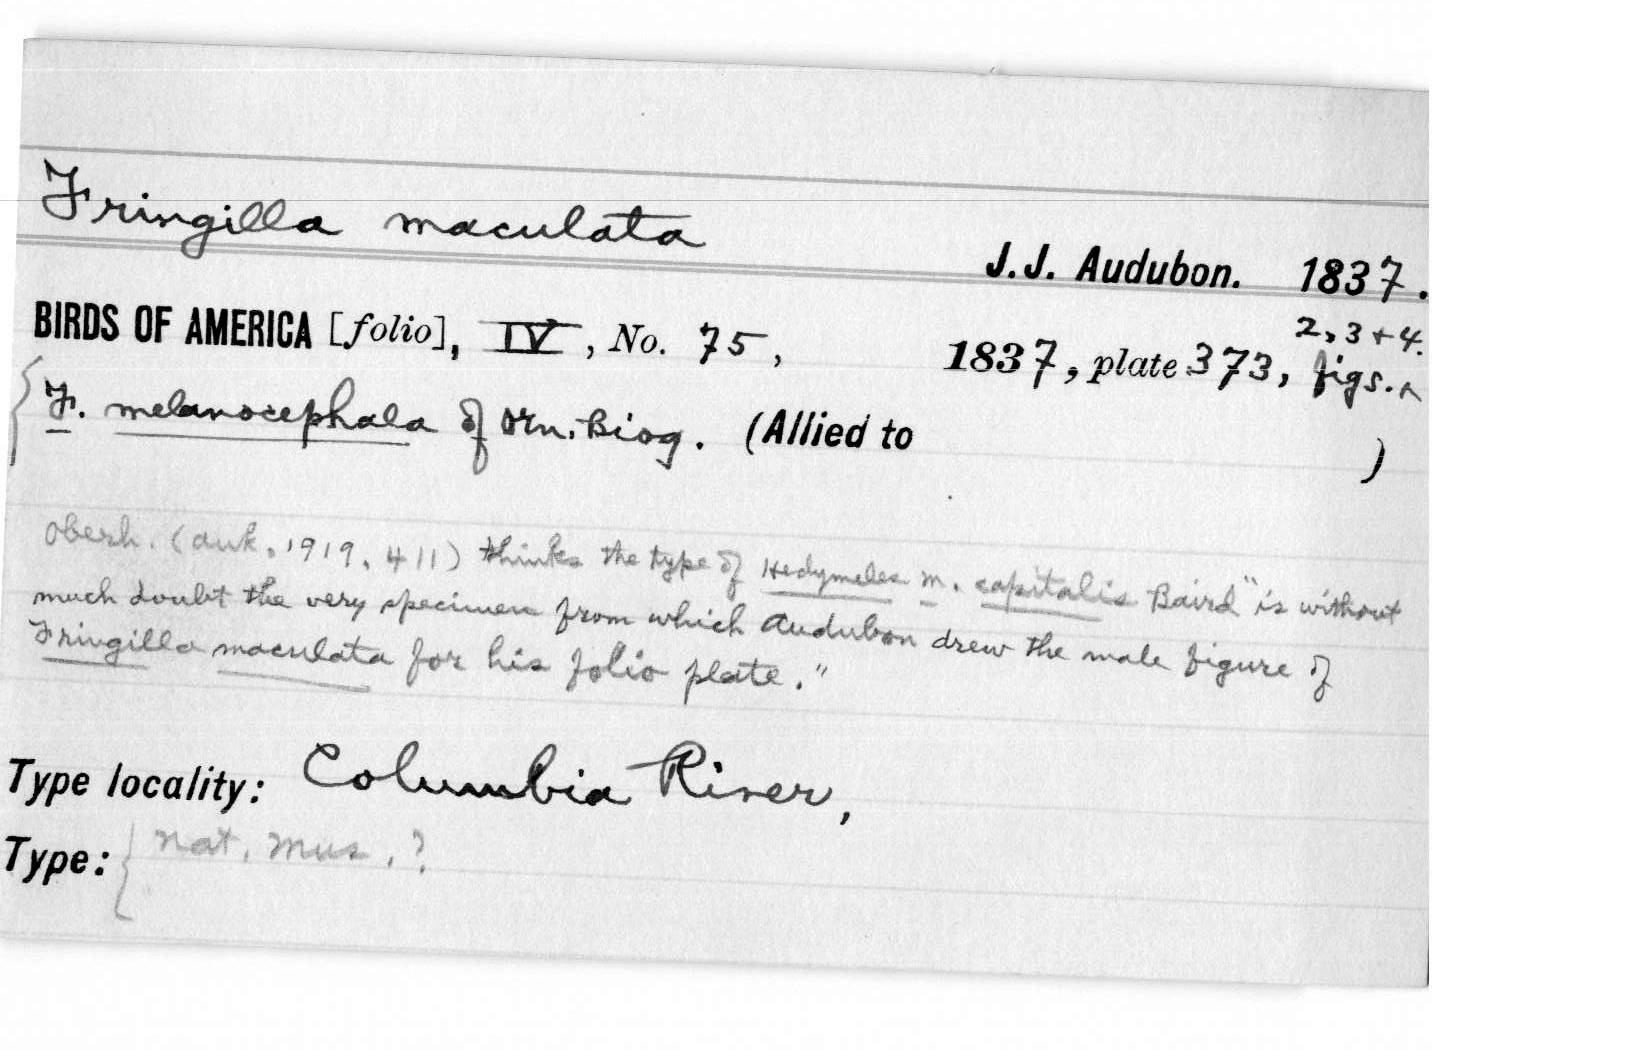 Fringilla maculata
J.J. Audubon. 1837.
BIRDS OF AMERICA [folio], IV, No. 75, 1837, plate 373, figs. ^ 2, 3 + 4.
F. melanocephala of Orn. Biog. (Allied to )
Oberh. (Auk, 1919, 411) thinks the type of Hedymeles m. capitalis Baird "is without
much doubt the very specimen from which Audubon drew the male figure of
Fringilla maculata for his folio plate."
Type locality: Columbia River,
Type: Nat. Mus. ?